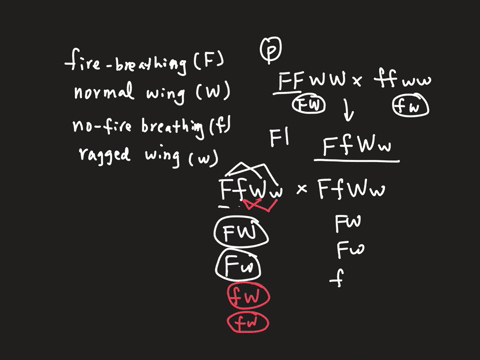 fire-breathing (F)
normal wing (W)
no-fire breathing (f)
ragged wing (w)
P
FFWW × ffww
FW
fw
F1
FfWw
FfWw × FfWw
FW
Fw
fW
fw
FW
Fw
f